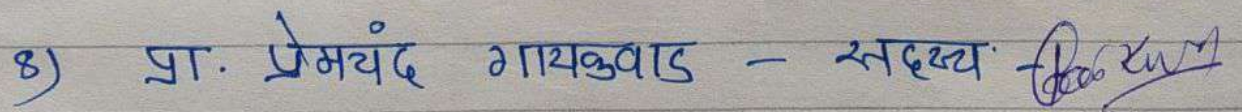 8) प्रा. प्रेमचंद गायकवाड - सदस्य